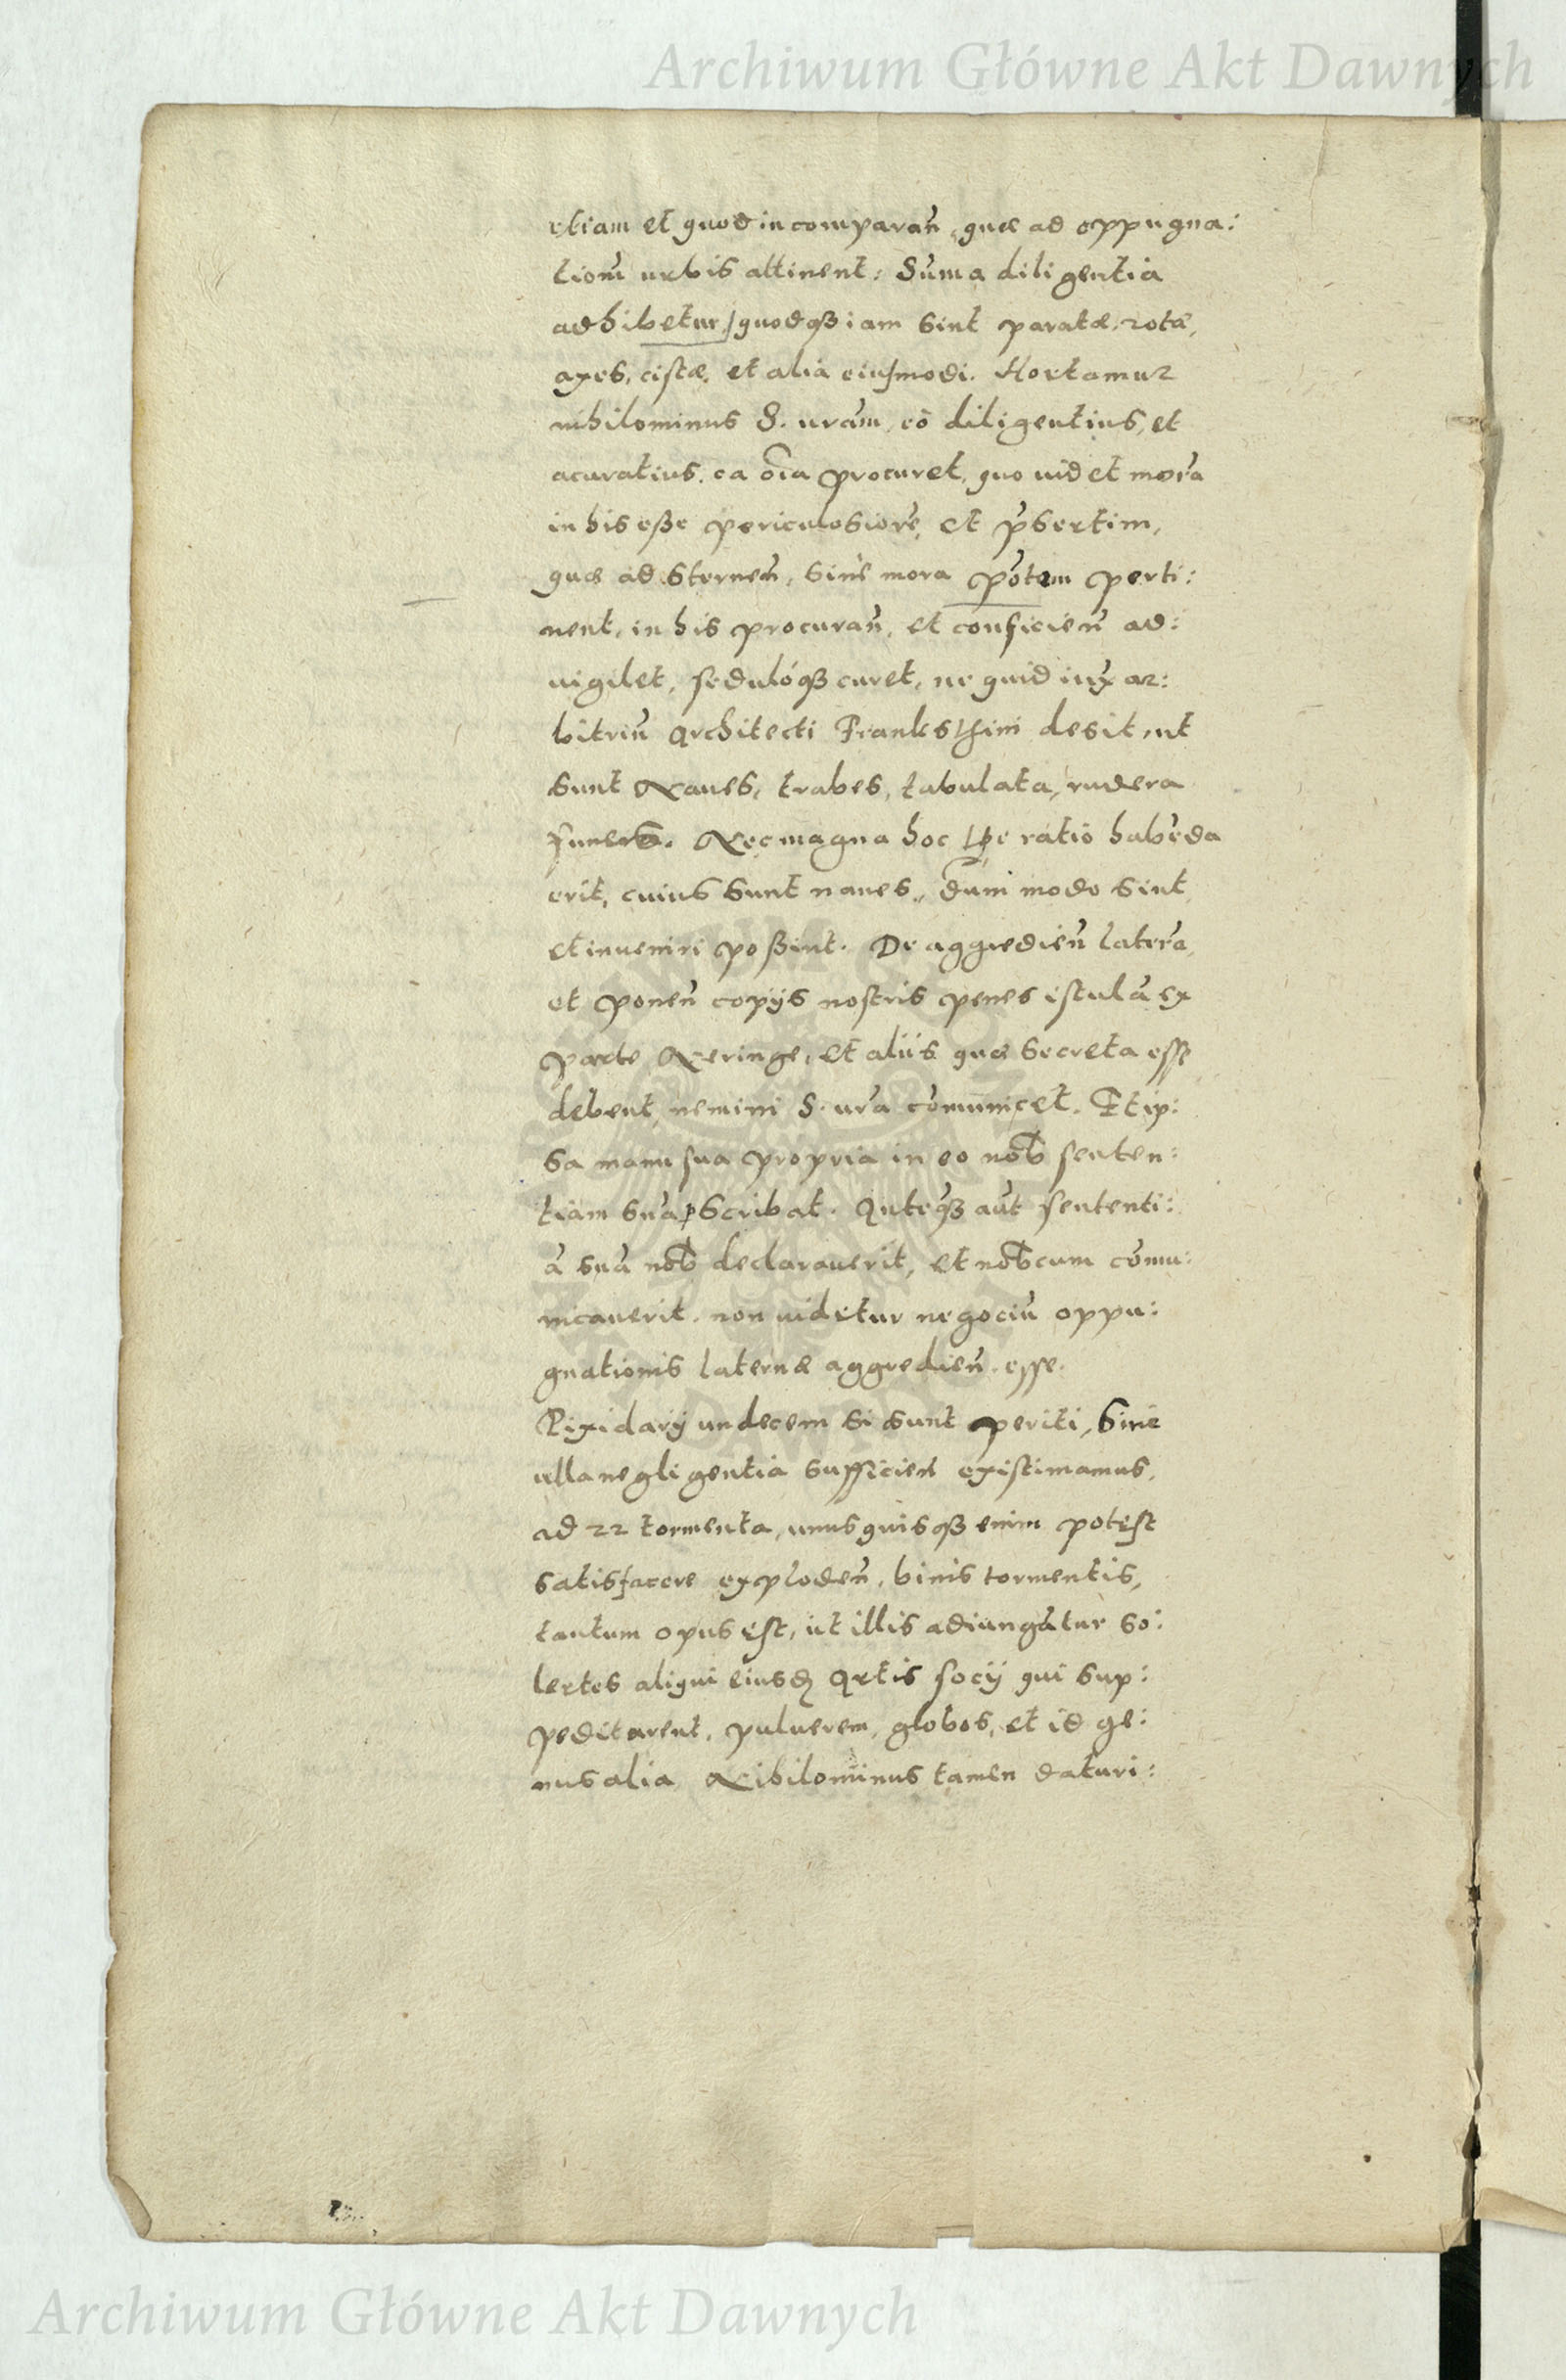 Archiwum Główne Akt Dawnych
etiam et quod in comparan̄, quae ad oppugna:
tionē urbis attinent: Sūma diligentia
adhibetur, quodqꝫ iam sint paratæ, rotæ,
axes, cistæ, et alia eiusmodi. Hortamur
nihilominus S. vrām, eò diligentius, et
acuratius, ea oīa procuret, quo videt morā
in his eße periculosiorē, et p̄sertim,
quæ ad sternen̄, sine mora pōtem perti:
nent, in his procuran̄, et conficien̄ ad:
vigilet, sedulóqꝫ curet, ne quid iux̄ ar:
bitriū Architecti desit, ut
sunt Naues, trabes, tabulata, rudera
Nec magna hoc tp̄e ratio habēda
erit, cuius sunt naues, dum̄modo sint
et inveniri poßint. De aggredien̄ laternā,
et ponen̄ copijs nostris penes istulā ex
parte Neringe, et aliis quæ secreta esse
debent, nemini S. vrā cōmunicet. Et ip:
sa manu sua propria in eo nob̄ senten:
tiam suā p̱scribat. Anteqꝫ aūt sententi:
ā suā nob̄ declaraverit, et nob̄cum cōmu:
nicaverit, non videtur negociū oppu:
gnationis laternæ aggredien̄ esse.
Pixidarij undecem si sunt periti, sine
ulla negligentia sufficien̄ existimamus,
ad 22 tormenta, unusquisqꝫ enim potest
satisfacere exploden̄, binis tormentis,
tantum opus est, ut illis adiungātur so:
lertes aliqui eiusdē Artis socij qui sup:
peditarent, pulverem, globos, et id ge:
nus alia Nihilominus tamen daturi:
Archiwum Główne Akt Dawnych